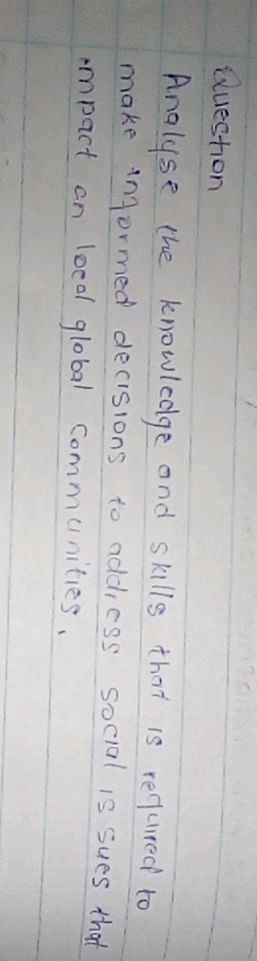 Question
Analyse the knowledge and skills that is required to
make informed decisions to address social issues that
impact on local global communities.